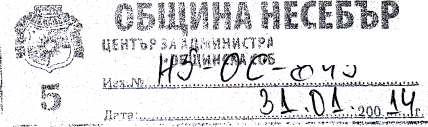 ОБЩИНА НЕСЕБЪР
ЦЕНТЪР ЗА АДМИНИСТРА
ОБЩИНСКА СОБ
Изх.№ Н3-ОС-
5
Дата: 31.01. 200 14 г.